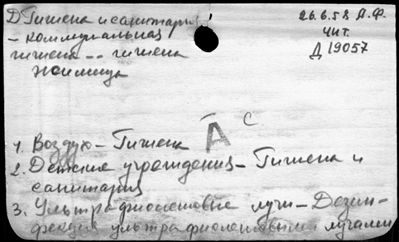 Д Гигиена и санитария
26.6.58 А.Ф.
- коммунальная
чит.
гигиена -- гигиена
Д 19057
жилища
А С
1. Воздух - Гигиена
2. Детские учреждения - Гигиена и
санитария
3. Ультрафиолетовые лучи - Дезин-
фекция ультрафиолетовыми лучами